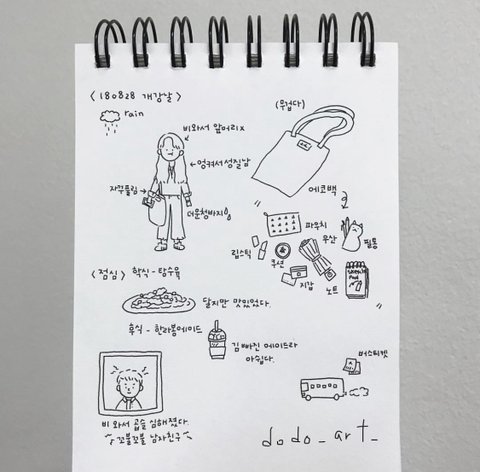 < 180828 개강날 >
rain
(무겁다)
비와서 앞머리x
←엉켜서 성질남
자꾸풀림
더운청바지
에코백
파우치
우산
필통
립스틱
쿠션
지갑
노트
<점심> 학식 - 탕수육
달지만 맛있었다.
후식 - 한라봉에이드
김빠진 에이드라
아쉽다.
버스티켓
비 와서 곱슬 심해졌다.
꼬불꼬불 남자친구
dodo_art_